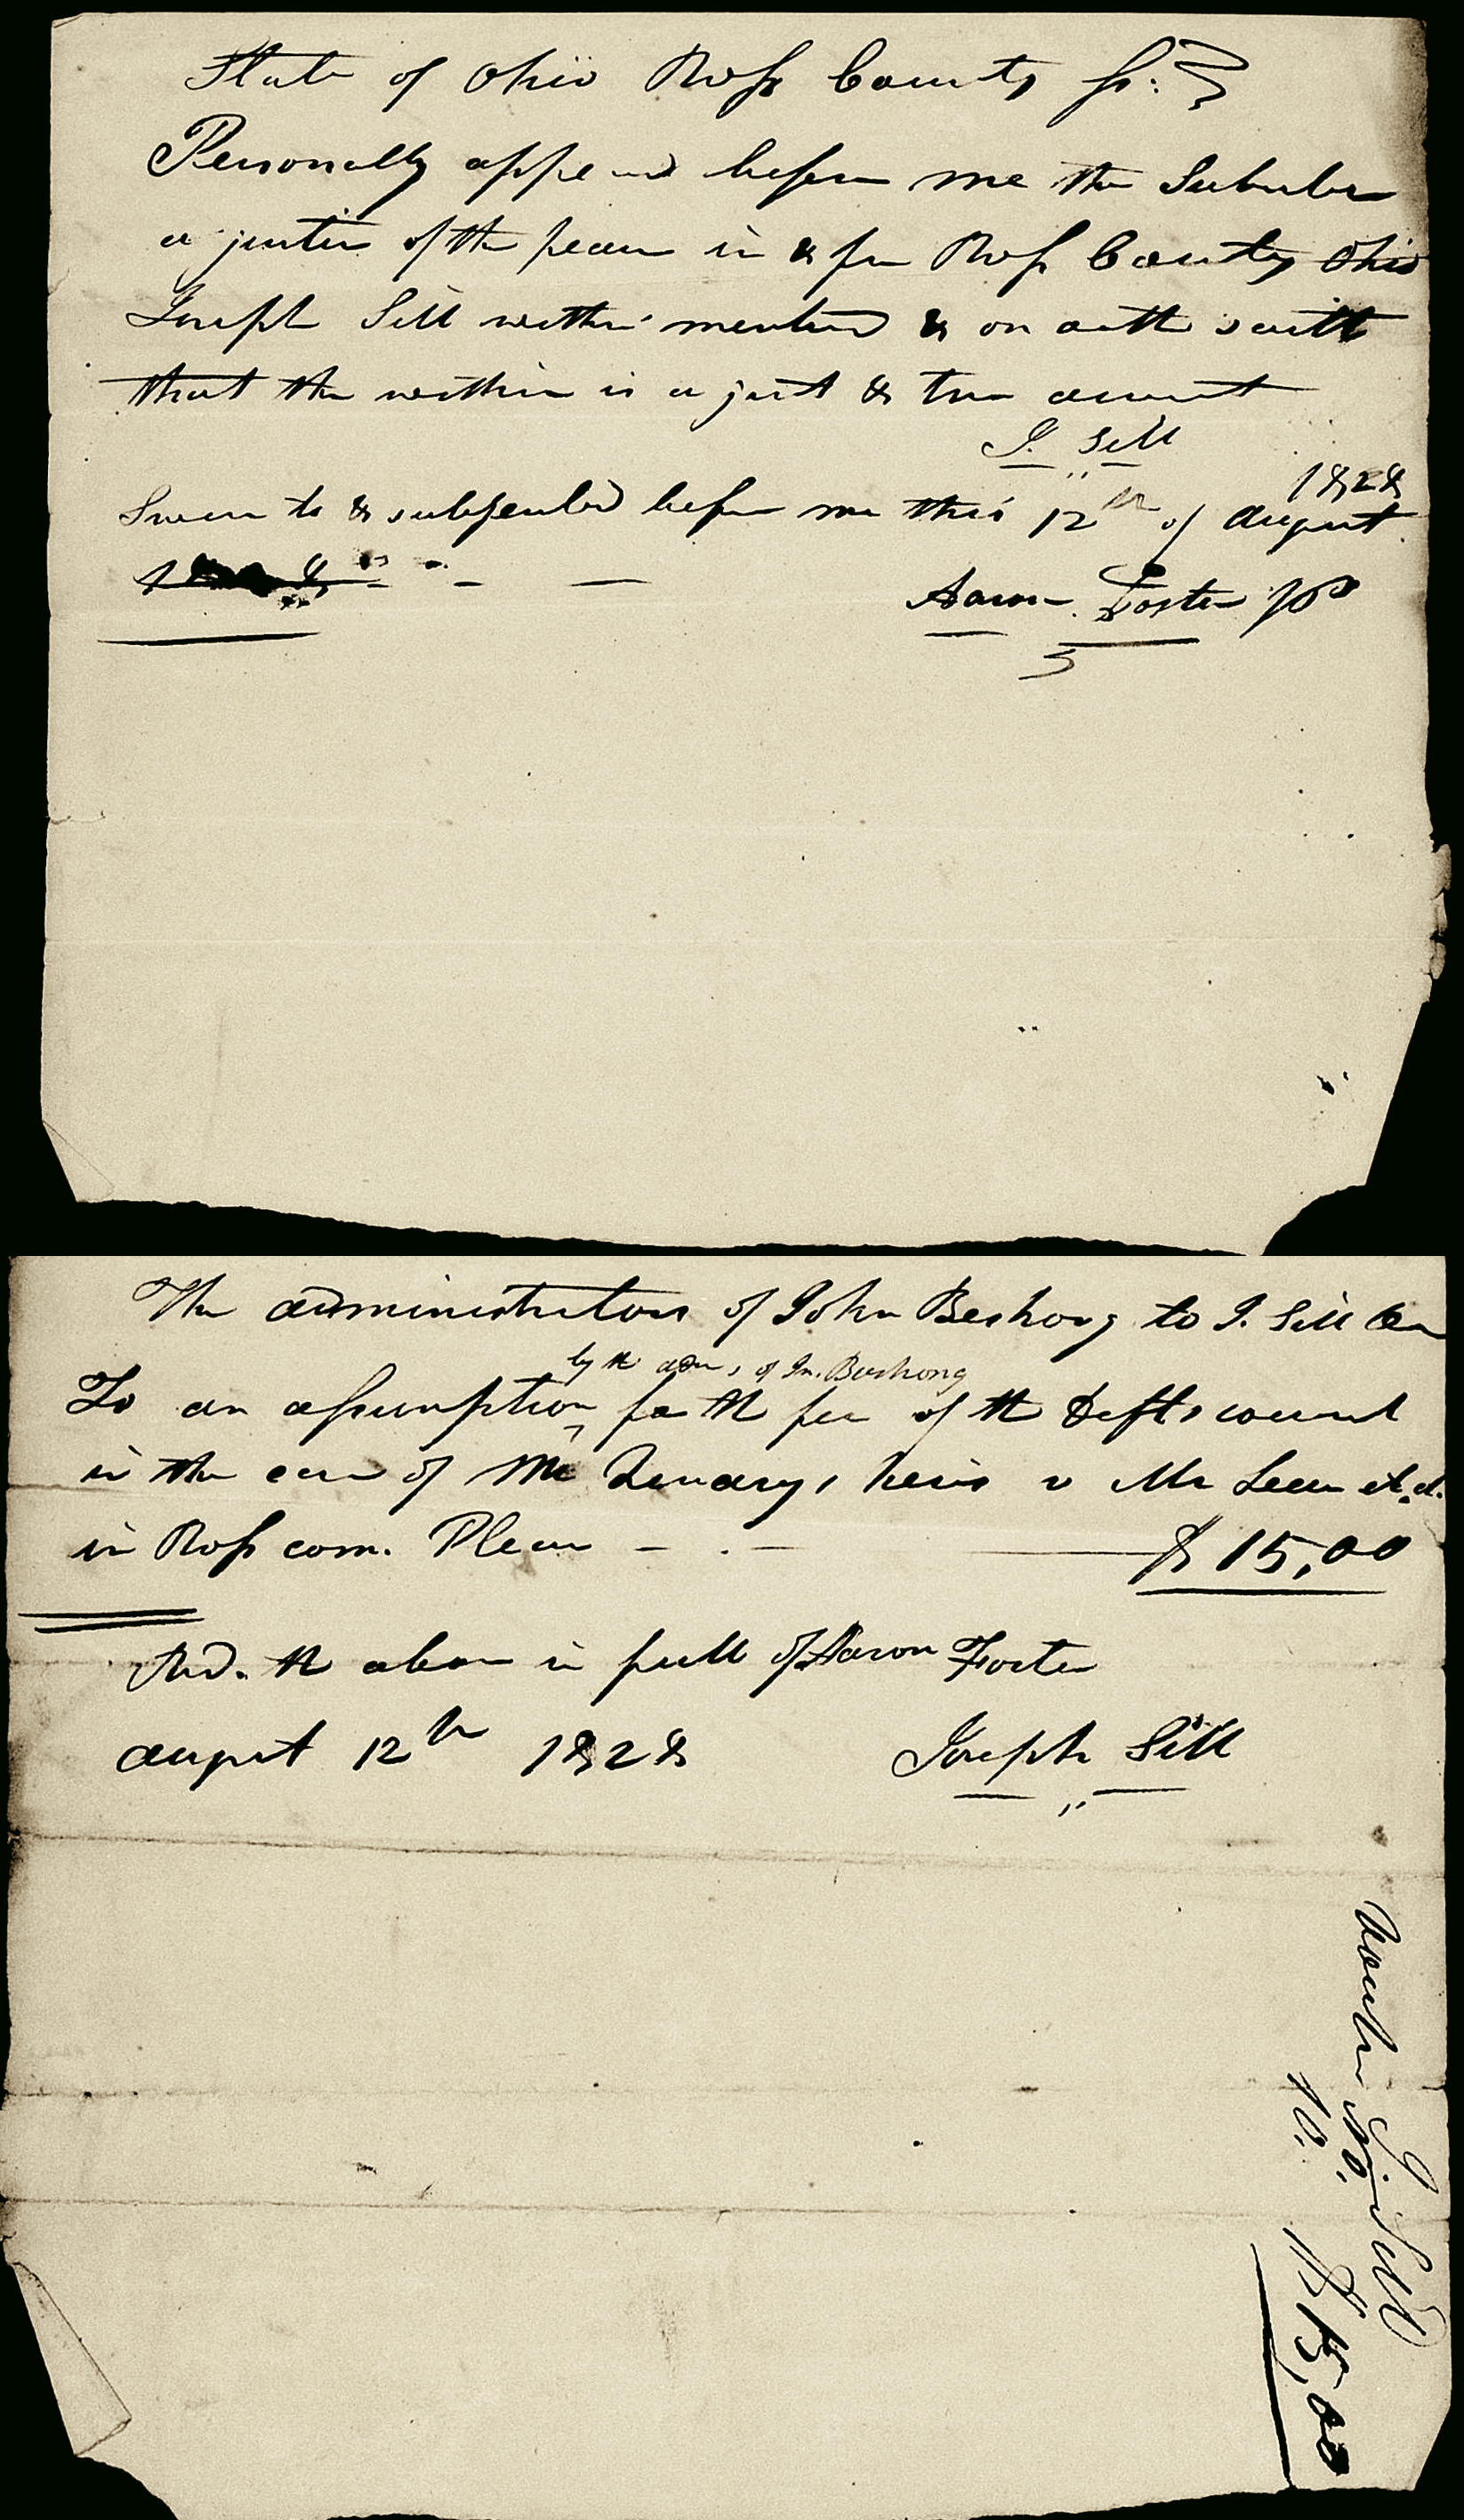 State of Ohio Ross County ss:
Personally appeard before me the Subscriber
a justice of the peace in & for Ross County Ohio
Joseph Sill within mentiond & on oath saith
that the within is a just & true account
J. Sill
Sworn to & subscribed before me this 12th of August 1828
Aaron Foster JP
The administrators of John Beshong to J. Sill Dr
by the adms of Jn. Bushong
To an assumption for the fee of the Defts counsel
in the case of McLenarys heirs v McLean et al.
in Ross com. Pleas $15,00
Recd. the above in full of Aaron Foster
august 12th 1828 Joseph Sill
Voucher No. 10.
J. Sill
$15,00